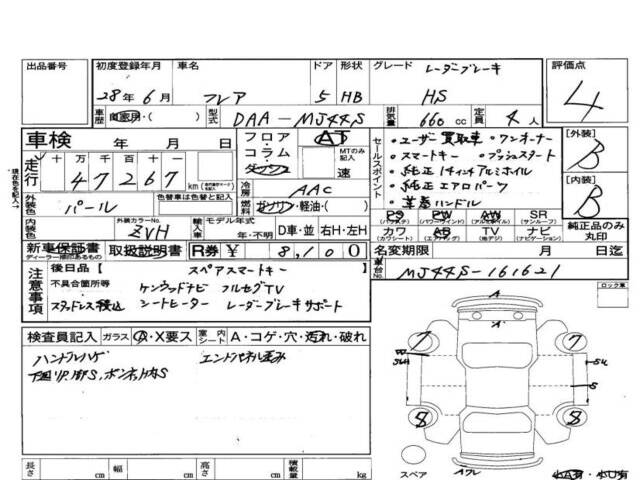 出品番号 初度登録年月 車名 ドア 形状 グレード レーダーブレーキ 評価点
28年6月 フレア 5 HB HS 4
車歴 自家用・( ) 型式 DAA-MJ44S 排気量 660cc 定員 4人
車検 年 月 日 フロア・コラム・ダッシュ AT MTのみ記入 速
走行 十 万 千 百 十 一
47267 km
冷房 AAC
燃料 ガソリン・軽油・( )
外装色 パール 色替車は色替と記入
内装色 外装カラーNo. ZVH 輸入車 モデル年式 年・不明 D車・並 右H・左H
セールスポイント
・ユーザー買取車 ・ワンオーナー
・スマートキー ・プッシュスタート
・純正14インチアルミホイル
・純正エアロパーツ
・革巻ハンドル
[外装] B
[内装] B
PS PW AW SR
(パワステ) (パワーウインド) (アルミホイル) (サンルーフ)
カワ AB TV ナビ
(カワシート) (エアバッグ) (地デジ) (ナビゲーション)
純正品のみ丸印
新車保証書 取扱説明書 R券 ¥ 8,100
ディーラー押印のあるもの
名変期限 月 日迄
車台No. MJ44S-161621
注意事項
後日品 スペアスマートキー
不具合箇所等 ケンウッドナビ フルセグTV
スタッドレス積込 シートヒーター レーダーブレーキサポート
ロック車
検査員記入 ガラス A・X要ス 室内シート A・コゲ・穴・汚れ・破れ
ハンドルハゲ エンドパネル歪み
下廻りP,脚S,ボンネット内S
A
A'
7 7
S4
S
8 8
スペア
長さ cm 幅 cm 高さ cm 積載量 kg